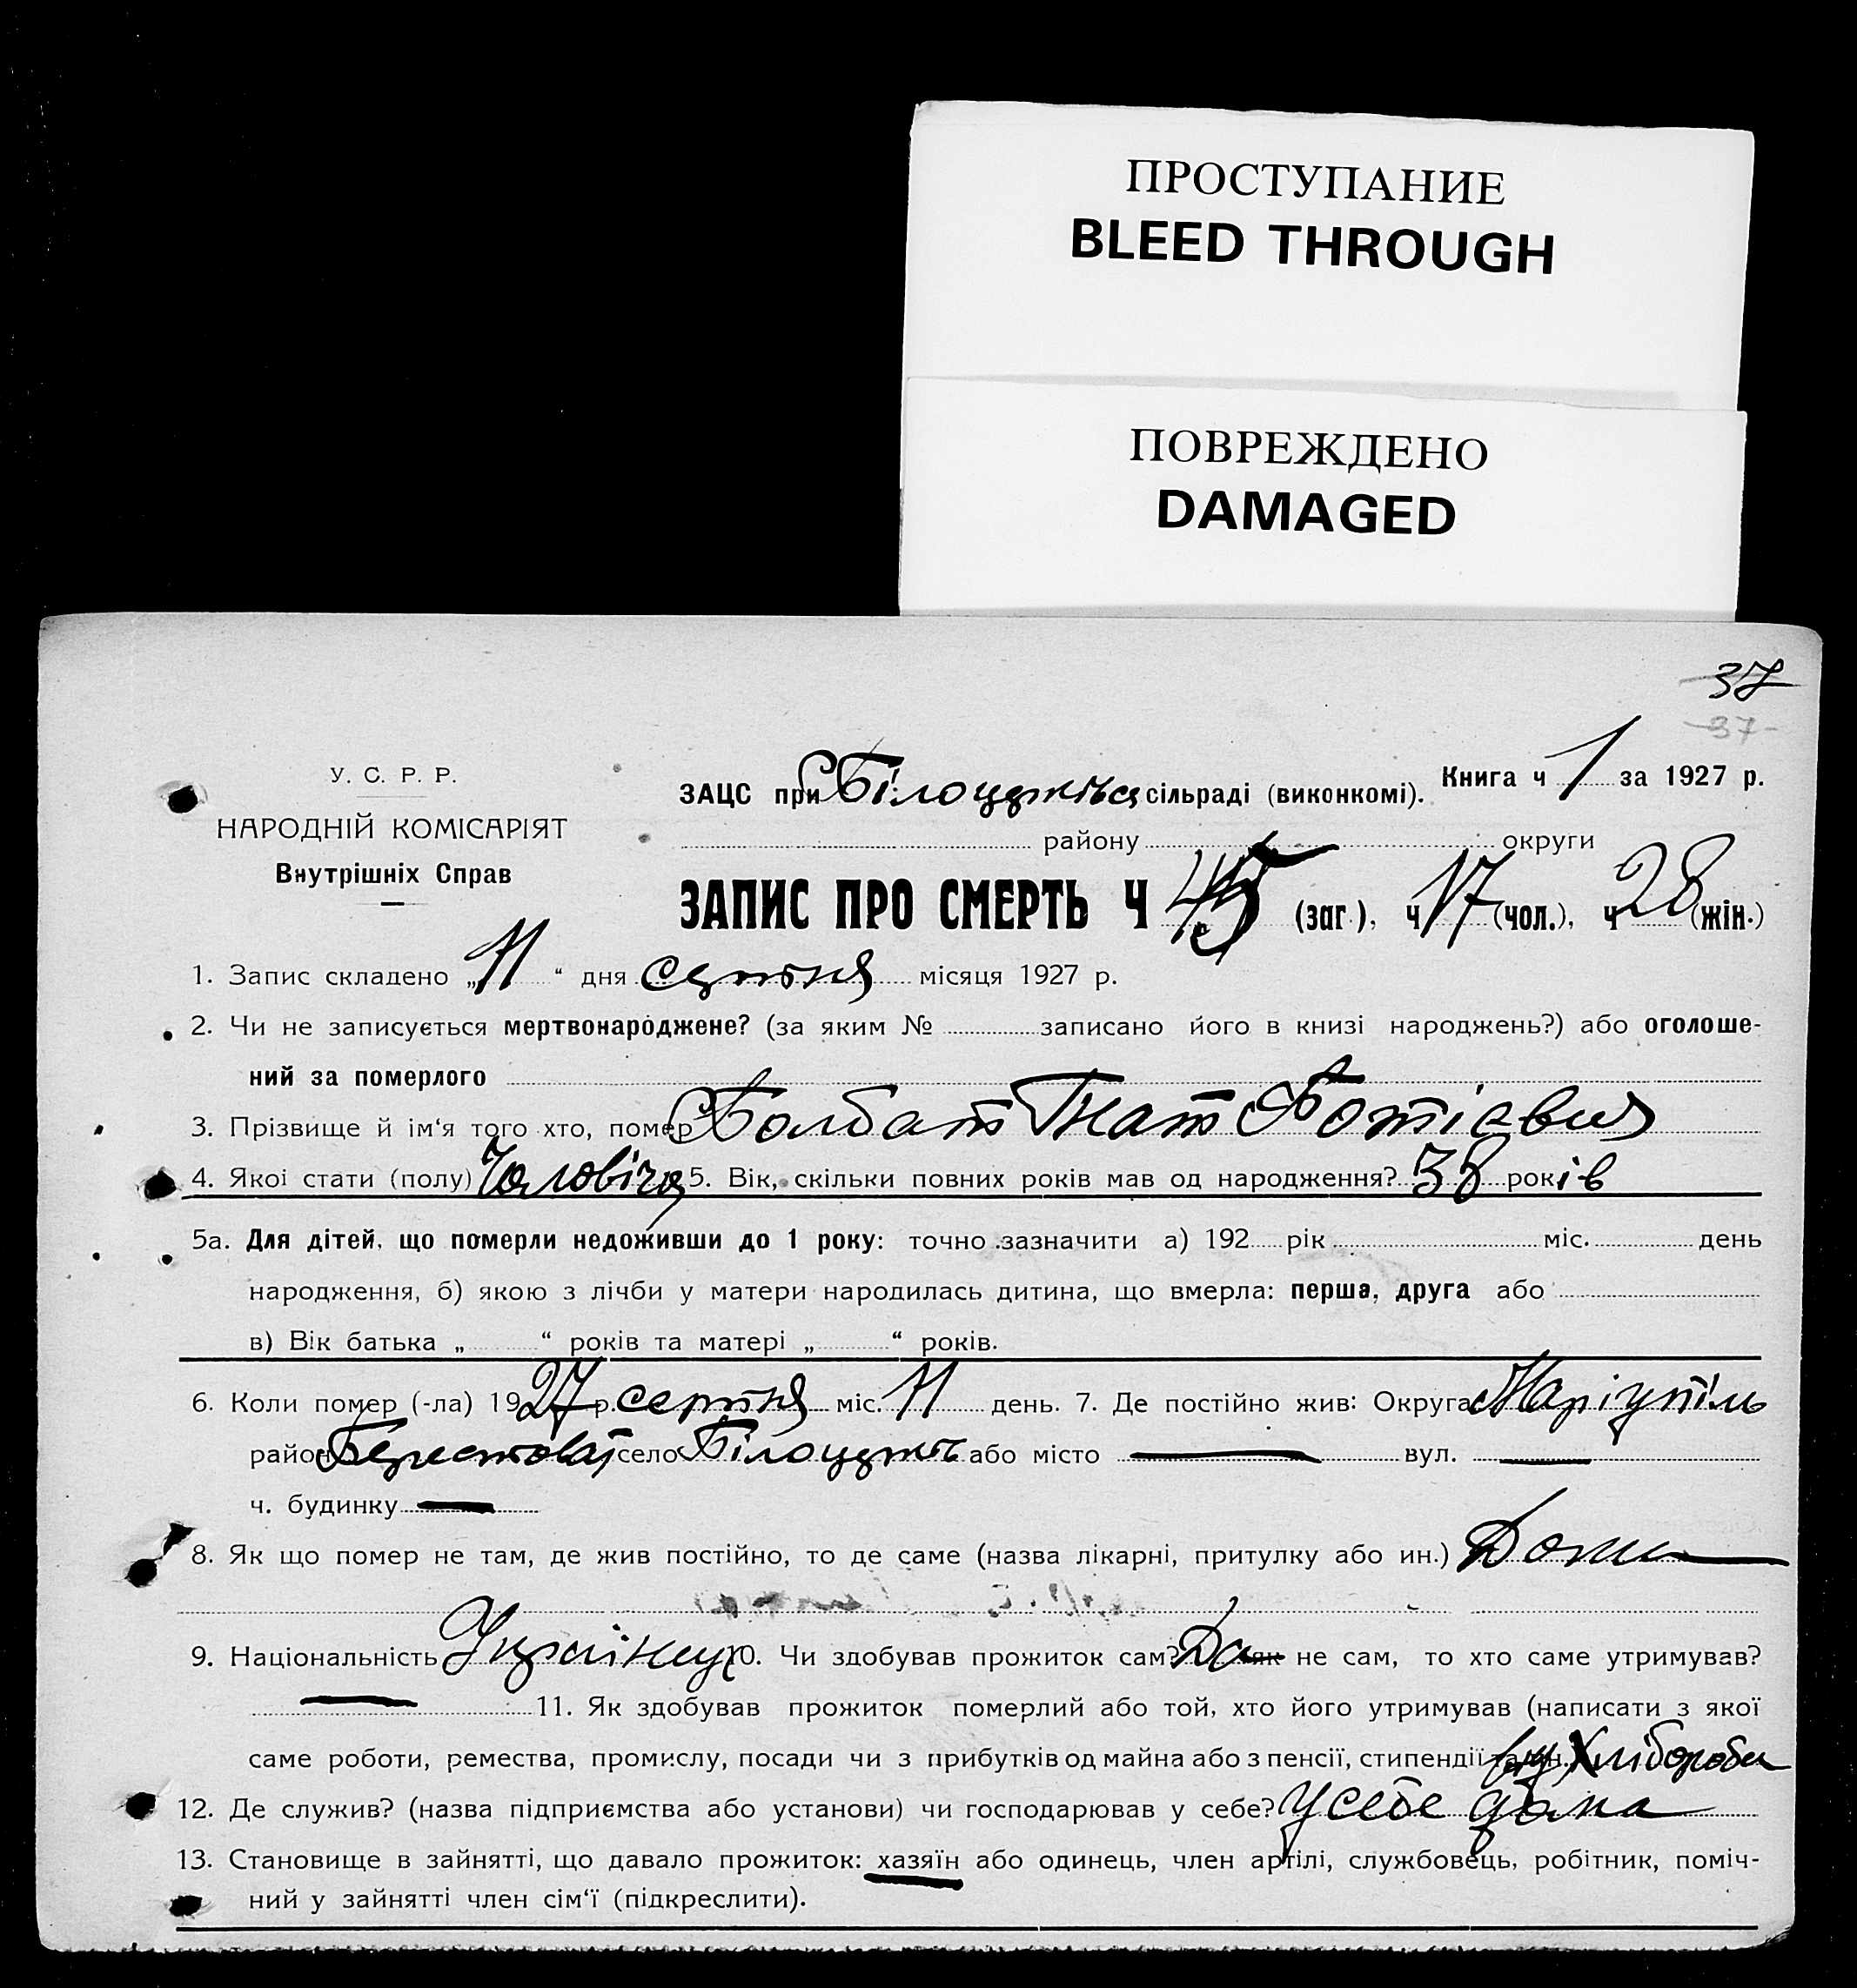 ПРОСТУПАНИЕ
BLEED THROUGH
ПОВРЕЖДЕНО
DAMAGED
37
37
У. С. Р. Р.
НАРОДНІЙ КОМІСАРІЯТ
Внутрішніх Справ
ЗАЦС при сільраді (виконкомі). Книга ч 1 за 1927 р.
району округи
ЗАПИС ПРО СМЕРТЬ Ч 45 (заг.), ч 17 (чол.), ч 28 (жін.)
1. Запис складено „11“ дня серпня місяця 1927 р.
2. Чи не записується мертвонароджене? (за яким № записано його в книзі народжень?) або оголоше-
ний за померлого
3. Прізвище й ім‘я того хто, помер Болбат Гнат
4. Якої стати (полу) Чоловіча 5. Вік, скільки повних років мав од народження? 38 років
5а. Для дітей, що померли недоживши до 1 року: точно зазначити а) 192 рік міс. день
народження, б) якою з лічби у матери народилась дитина, що вмерла: перша, друга або
в) Вік батька „ “ років та матері „ “ років.
6. Коли помер (-ла) 1927 р. серпня міс. 11 день. 7. Де постійно жив: Округа Маріупіль
район село або місто — вул. —
ч. будинку —
8. Як що помер не там, де жив постійно, то де саме (назва лікарні, притулку або ин.) Дома
9. Національність 10. Чи здобував прожиток сам? Да як не сам, то хто саме утримував?
— 11. Як здобував прожиток померлий або той, хто його утримував (написати з якої
саме роботи, ремества, промислу, посади чи з прибутків од майна або з пенсії, стипендії та ин.)
12. Де служив? (назва підприємства або установи) чи господарював у себе? У себе дома
13. Становище в зайнятті, що давало прожиток: хазяїн або одинець, член артілі, службовець, робітник, поміч-
ний у зайнятті член сім‘ї (підкреслити).